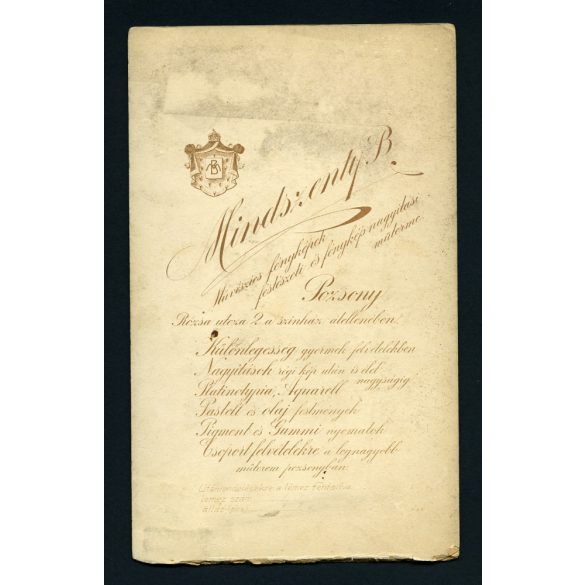 Mindszenty B.
Müvészies fényképek
festészeti és fénykép nagyitási
müterme
Pozsony
Rózsa utcza 2. a szinház átellenében.
Különlegesség gyermek felvételekben
Nagyitások régi kép után is élet
nagyságig
Platinotypia, Aquarell
Pastell és olaj festmények
Pigment és Gummi nyomatok
Csoport felvételekre a legnagyobb
müterem pozsonyban.
Utánrendelésekre a lemez fentartva
lemez szám